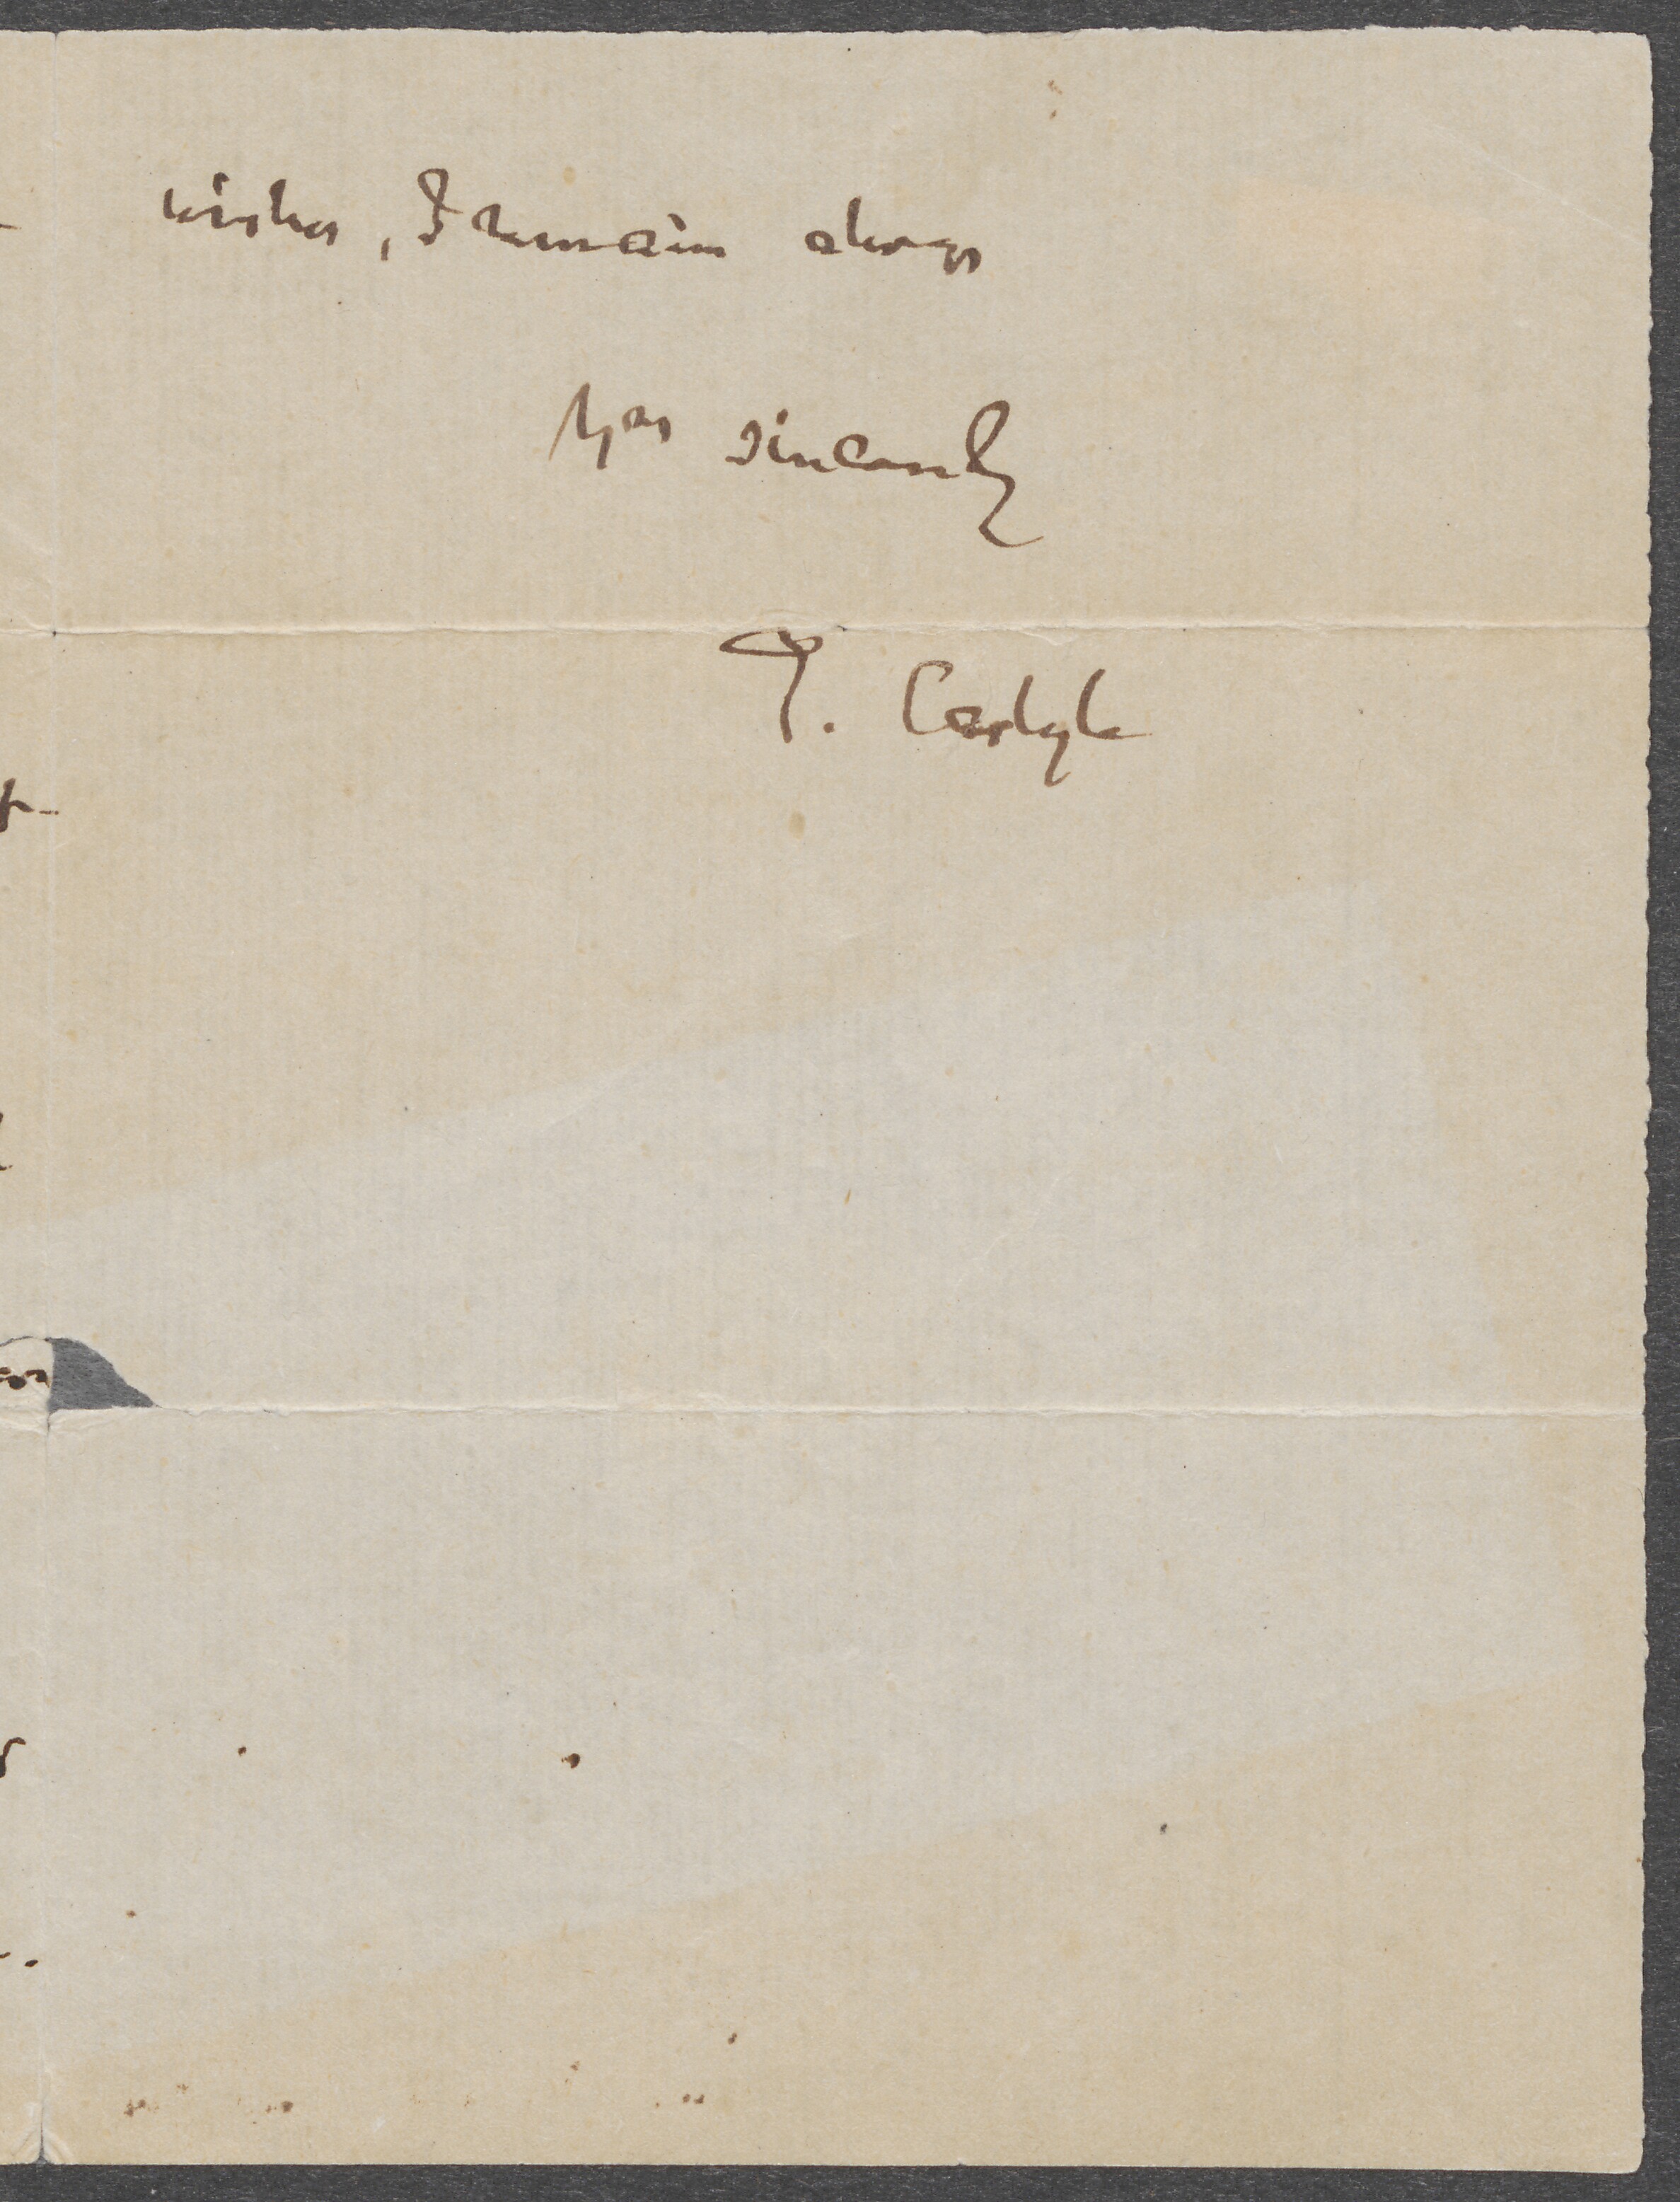 wishes, I remain always
Yrs sincerely
T. Carlyle